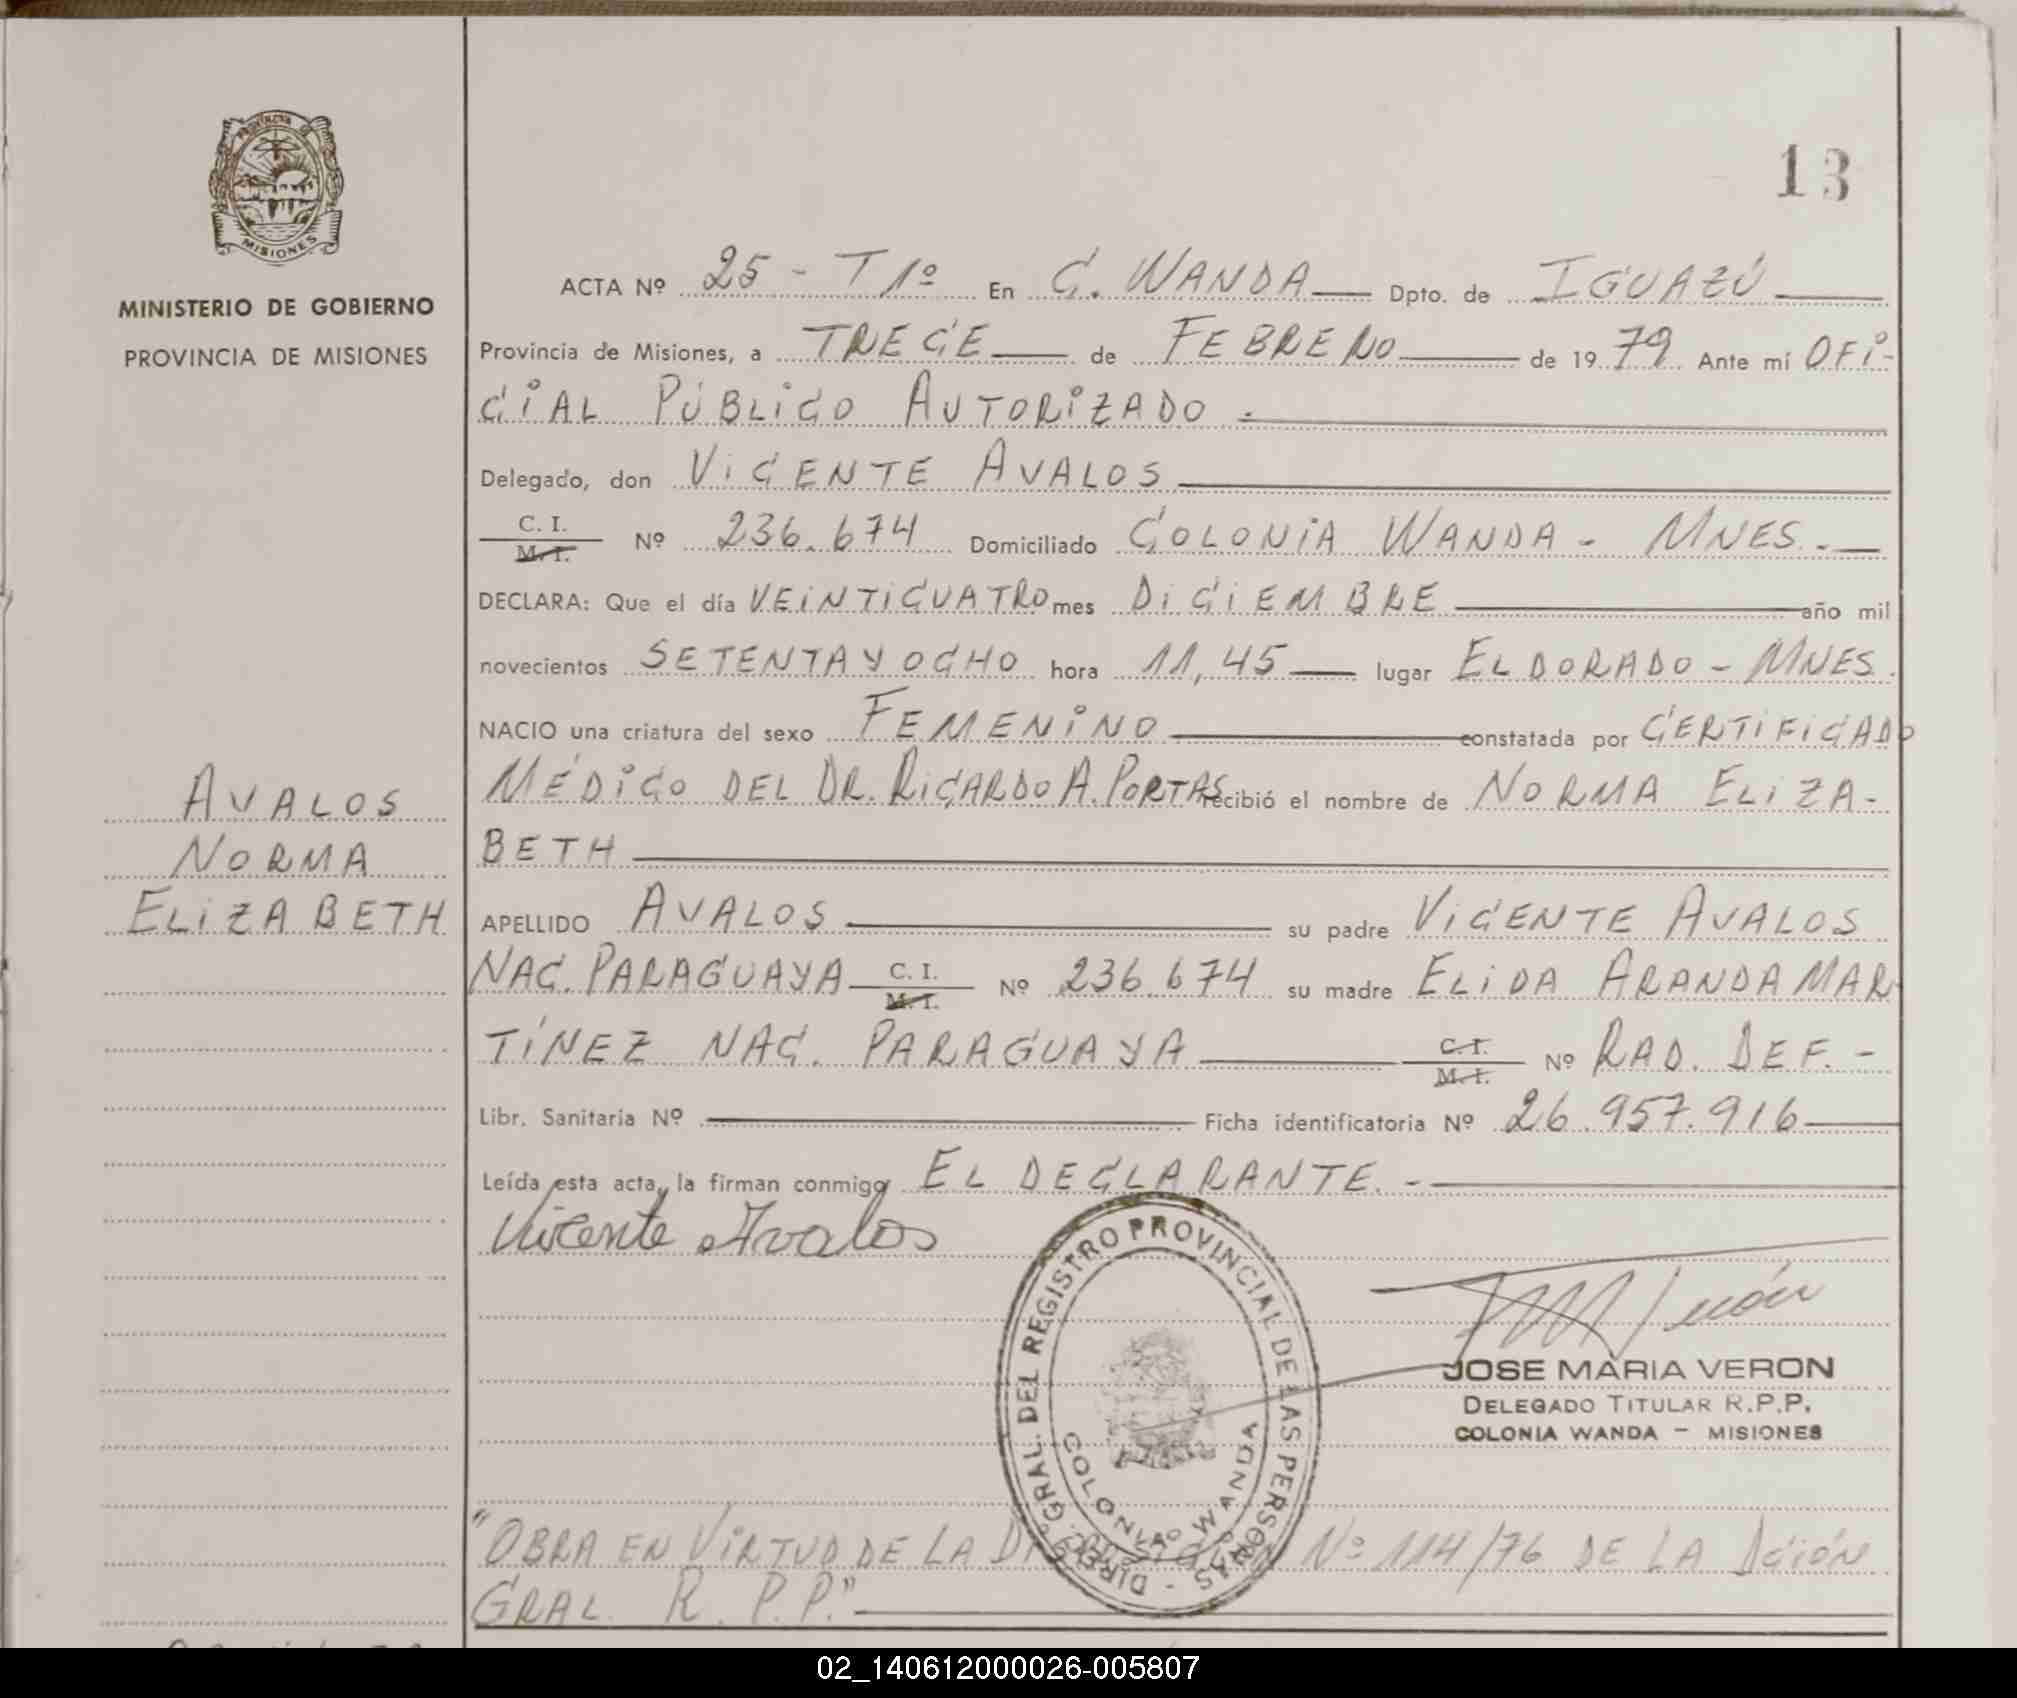 PROVINCIA DE
MISIONES
MINISTERIO DE GOBIERNO
PROVINCIA DE MISIONES
AVALOS
NORMA
ELIZABETH
13
ACTA Nº 25 - T 1º En C. WANDA Dpto. de IGUAZÚ
Provincia de Misiones, a TRECE de FEBRERO de 1979 Ante mí OFI-
CIAL PÚBLICO AUTORIZADO.
Delegado, don VICENTE AVALOS
C. I. / M. I. Nº 236.674 Domiciliado COLONIA WANDA - MNES.-
DECLARA: Que el día VEINTICUATRO mes DICIEMBRE año mil
novecientos SETENTA Y OCHO hora 11,45 lugar ELDORADO - MNES.
NACIO una criatura del sexo FEMENINO constatada por CERTIFICADO
MÉDICO DEL DR. RICARDO A. PORTAS recibió el nombre de NORMA ELIZA-
BETH
APELLIDO AVALOS su padre VICENTE AVALOS
NAC. PARAGUAYA C. I. / M. I. Nº 236.674 su madre ELIDA ARANDA MAR-
TÍNEZ NAC. PARAGUAYA C. I. / M. I. Nº RAD. DEF.-
Libr. Sanitaria Nº Ficha identificatoria Nº 26.957.916
Leída esta acta, la firman conmigo EL DECLARANTE.-
Vicente Avalos
DIR. GRAL. DEL REGISTRO PROVINCIAL DE LAS PERSONAS -
COLONIA WANDA
JOSE MARIA VERON
DELEGADO TITULAR R.P.P.
COLONIA WANDA - MISIONES
"OBRA EN VIRTUD DE LA Nº 114/76 DE LA DCIÓN
GRAL. R.P.P."
02_140612000026-005807